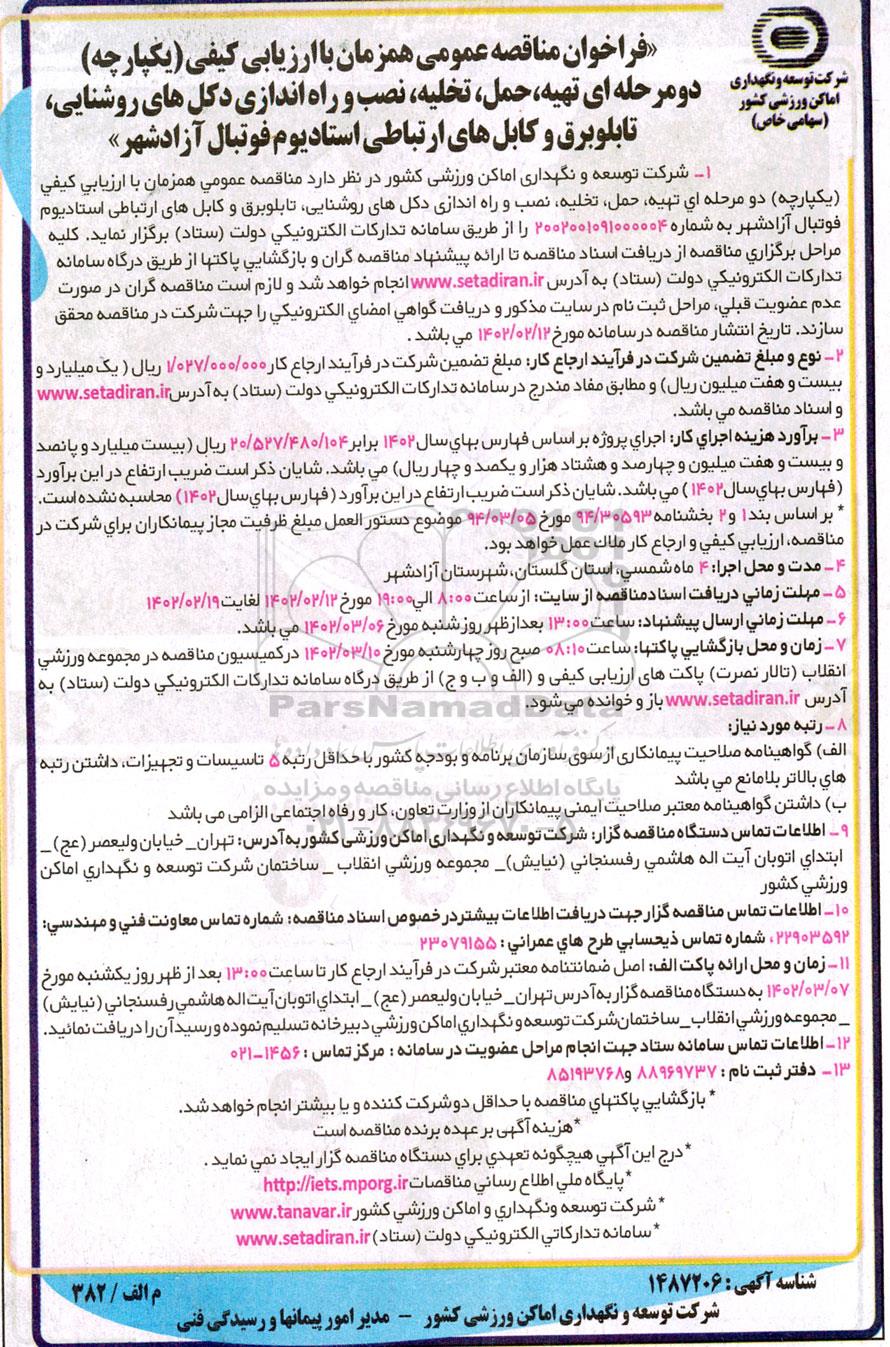 شرکت توسعه و نگهداری
اماکن ورزشی کشور
(سهامی خاص)
«فراخوان مناقصه عمومی همزمان با ارزیابی کیفی (یکپارچه)
دو مرحله ای تهیه، حمل، تخلیه، نصب و راه اندازی دکل های روشنایی،
تابلوبرق و کابل های ارتباطی استادیوم فوتبال آزادشهر»
۱ـ شرکت توسعه و نگهداری اماکن ورزشی کشور در نظر دارد مناقصه عمومي همزمان با ارزیابي کیفي
(یکپارچه) دو مرحله اي تهیه، حمل، تخلیه، نصب و راه اندازی دکل های روشنایی، تابلوبرق و کابل های ارتباطی استادیوم
فوتبال آزادشهر به شماره ۲۰۰۲۰۰۱۰۹۱۰۰۰۰۰۴ را از طریق سامانه تدارکات الکترونیکي دولت (ستاد) برگزار نماید. کلیه
مراحل برگزاري مناقصه از دریافت اسناد مناقصه تا ارائه پیشنهاد مناقصه گران و بازگشایي پاکتها از طریق درگاه سامانه
تدارکات الکترونیکي دولت (ستاد) به آدرس www.setadiran.ir انجام خواهد شد و لازم است مناقصه گران در صورت
عدم عضویت قبلي، مراحل ثبت نام در سایت مذکور و دریافت گواهي امضاي الکترونیکي را جهت شرکت در مناقصه محقق
سازند. تاریخ انتشار مناقصه در سامانه مورخ ۱۴۰۲/۰۲/۱۲ مي باشد .
۲ـ نوع و مبلغ تضمین شرکت در فرآیند ارجاع کار: مبلغ تضمین شرکت در فرآیند ارجاع کار ۱/۰۲۷/۰۰۰/۰۰۰ ریال ( یک میلیارد و
بیست و هفت میلیون ریال) و مطابق مفاد مندرج در سامانه تدارکات الکترونیکي دولت (ستاد) به آدرس www.setadiran.ir
و اسناد مناقصه مي باشد.
۳ـ برآورد هزینه اجراي کار: اجراي پروژه بر اساس فهارس بهاي سال ۱۴۰۲ برابر ۲۰/۵۲۷/۴۸۰/۱۰۴ ریال (بیست میلیارد و پانصد
و بیست و هفت میلیون و چهارصد و هشتاد هزار و یکصد و چهار ریال) مي باشد. شایان ذکر است ضریب ارتفاع در این برآورد
(فهارس بهاي سال ۱۴۰۲ ) مي باشد. شایان ذکر است ضریب ارتفاع در این برآورد (فهارس بهاي سال ۱۴۰۲) محاسبه نشده است.
* بر اساس بند ۱ و ۲ بخشنامه ۹۴/۳۰۵۹۳ مورخ ۹۴/۰۳/۰۵ موضوع دستور العمل مبلغ ظرفیت مجاز پیمانکاران براي شرکت در
مناقصه، ارزیابي کیفي و ارجاع کار ملاك عمل خواهد بود.
۴ـ مدت و محل اجرا: ۴ ماه شمسي، استان گلستان، شهرستان آزادشهر
۵ـ مهلت زماني دریافت اسناد مناقصه از سایت: از ساعت ۸:۰۰ الي ۱۹:۰۰ مورخ ۱۴۰۲/۰۲/۱۲ لغایت ۱۴۰۲/۰۲/۱۹
۶ـ مهلت زماني ارسال پیشنهاد: ساعت ۱۳:۰۰ بعدازظهر روز شنبه مورخ ۱۴۰۲/۰۳/۰۶ مي باشد.
۷ـ زمان و محل بازگشایي پاکتها: ساعت ۰۸:۱۰ صبح روز چهارشنبه مورخ ۱۴۰۲/۰۳/۱۰ در کمیسیون مناقصه در مجموعه ورزشي
انقلاب (تالار نصرت) پاکت های ارزیابی کیفی و (الف و ب و ج) از طریق درگاه سامانه تدارکات الکترونیکي دولت (ستاد) به
آدرس www.setadiran.ir باز و خوانده مي شود.
ParsNamadData
۸ـ رتبه مورد نیاز:
الف) گواهینامه صلاحیت پیمانکاری از سوی سازمان برنامه و بودجه کشور با حداقل رتبه ۵ تاسیسات و تجهیزات، داشتن رتبه
های بالاتر بلامانع می باشد
پایگاه اطلاع رسانی مناقصه و مزایده
ب) داشتن گواهینامه معتبر صلاحیت ایمنی پیمانکاران از وزارت تعاون، کار و رفاه اجتماعی الزامی می باشد
۹ـ اطلاعات تماس دستگاه مناقصه گزار: شرکت توسعه و نگهداری اماکن ورزشی کشور به آدرس: تهران_ خیابان ولیعصر (عج)_
ابتداي اتوبان آیت اله هاشمي رفسنجاني (نیایش)_ مجموعه ورزشي انقلاب _ ساختمان شرکت توسعه و نگهداري اماکن
ورزشي کشور
۱۰ـ اطلاعات تماس مناقصه گزار جهت دریافت اطلاعات بیشتر در خصوص اسناد مناقصه: شماره تماس معاونت فني و مهندسي:
۲۲۹۰۳۵۹۲، شماره تماس ذیحسابي طرح هاي عمراني : ۲۳۰۷۹۱۵۵
۱۱ـ زمان و محل ارائه پاکت الف: اصل ضمانتنامه معتبر شرکت در فرآیند ارجاع کار تا ساعت ۱۳:۰۰ بعد از ظهر روز یکشنبه مورخ
۱۴۰۲/۰۳/۰۷ به دستگاه مناقصه گزار به آدرس تهران_ خیابان ولیعصر (عج)_ ابتداي اتوبان آیت اله هاشمي رفسنجاني (نیایش)
_ مجموعه ورزشي انقلاب_ ساختمان شرکت توسعه و نگهداري اماکن ورزشي دبیرخانه تسلیم نموده و رسید آن را دریافت نمائید.
۱۲ـ اطلاعات تماس سامانه ستاد جهت انجام مراحل عضویت در سامانه : مرکز تماس : ۱۴۵۶ـ۰۲۱
۱۳ـ دفتر ثبت نام : ۸۸۹۶۹۷۳۷ و ۸۵۱۹۳۷۶۸
* بازگشایي پاکتهاي مناقصه با حداقل دو شرکت کننده و یا بیشتر انجام خواهد شد.
*هزینه آگهی بر عهده برنده مناقصه است
*درج این آگهي هیچگونه تعهدي براي دستگاه مناقصه گزار ایجاد نمي نماید .
*پایگاه ملي اطلاع رساني مناقصات http://iets.mporg.ir
*شرکت توسعه ونگهداري و اماکن ورزشي کشور www.tanavar.ir
*سامانه تدارکاتي الکترونیکي دولت (ستاد) www.setadiran.ir
شناسه آگهی : ۱۴۸۷۲۰۶
م الف / ۳۸۲
شرکت توسعه و نگهداری اماکن ورزشی کشور - مدیر امور پیمانها و رسیدگی فنی